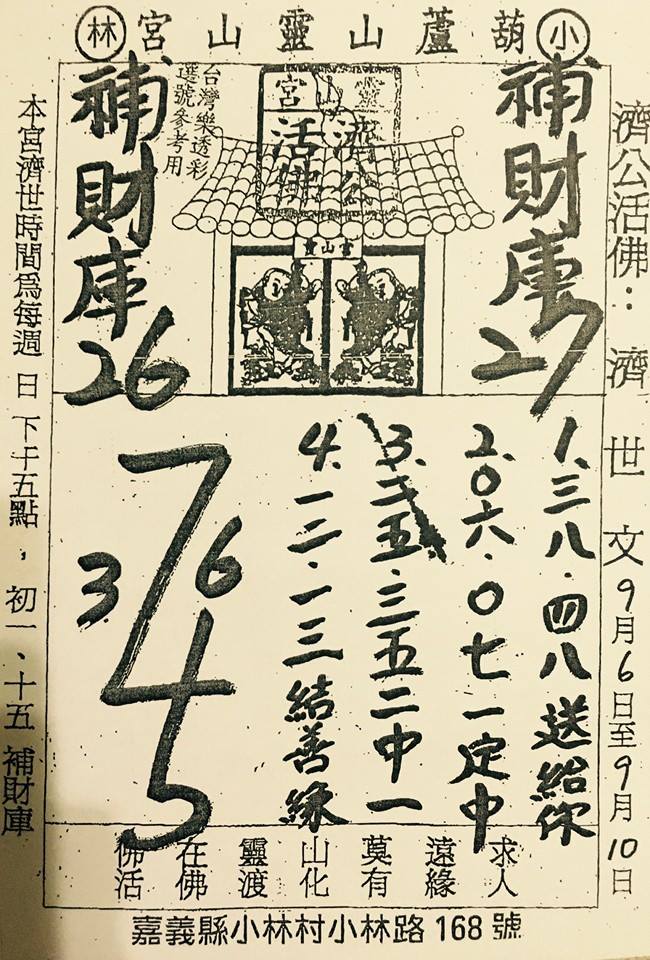 小葫蘆山靈山宮林
濟公活佛：濟世文9月6日至9月10日
補財庫27
靈山宮
濟公
活佛
台灣樂透彩
選號參考用
靈山宮
補財庫26
1.三八.四八送給你
2.0六.0七一定中
3.二五.三五二中一
4.一二.一三結善緣
7
3 6
4
5
佛在靈山莫遠求
活佛渡化有緣人
本宮濟世時間爲每週日下午五點，初一、十五補財庫
嘉義縣小林村小林路168號